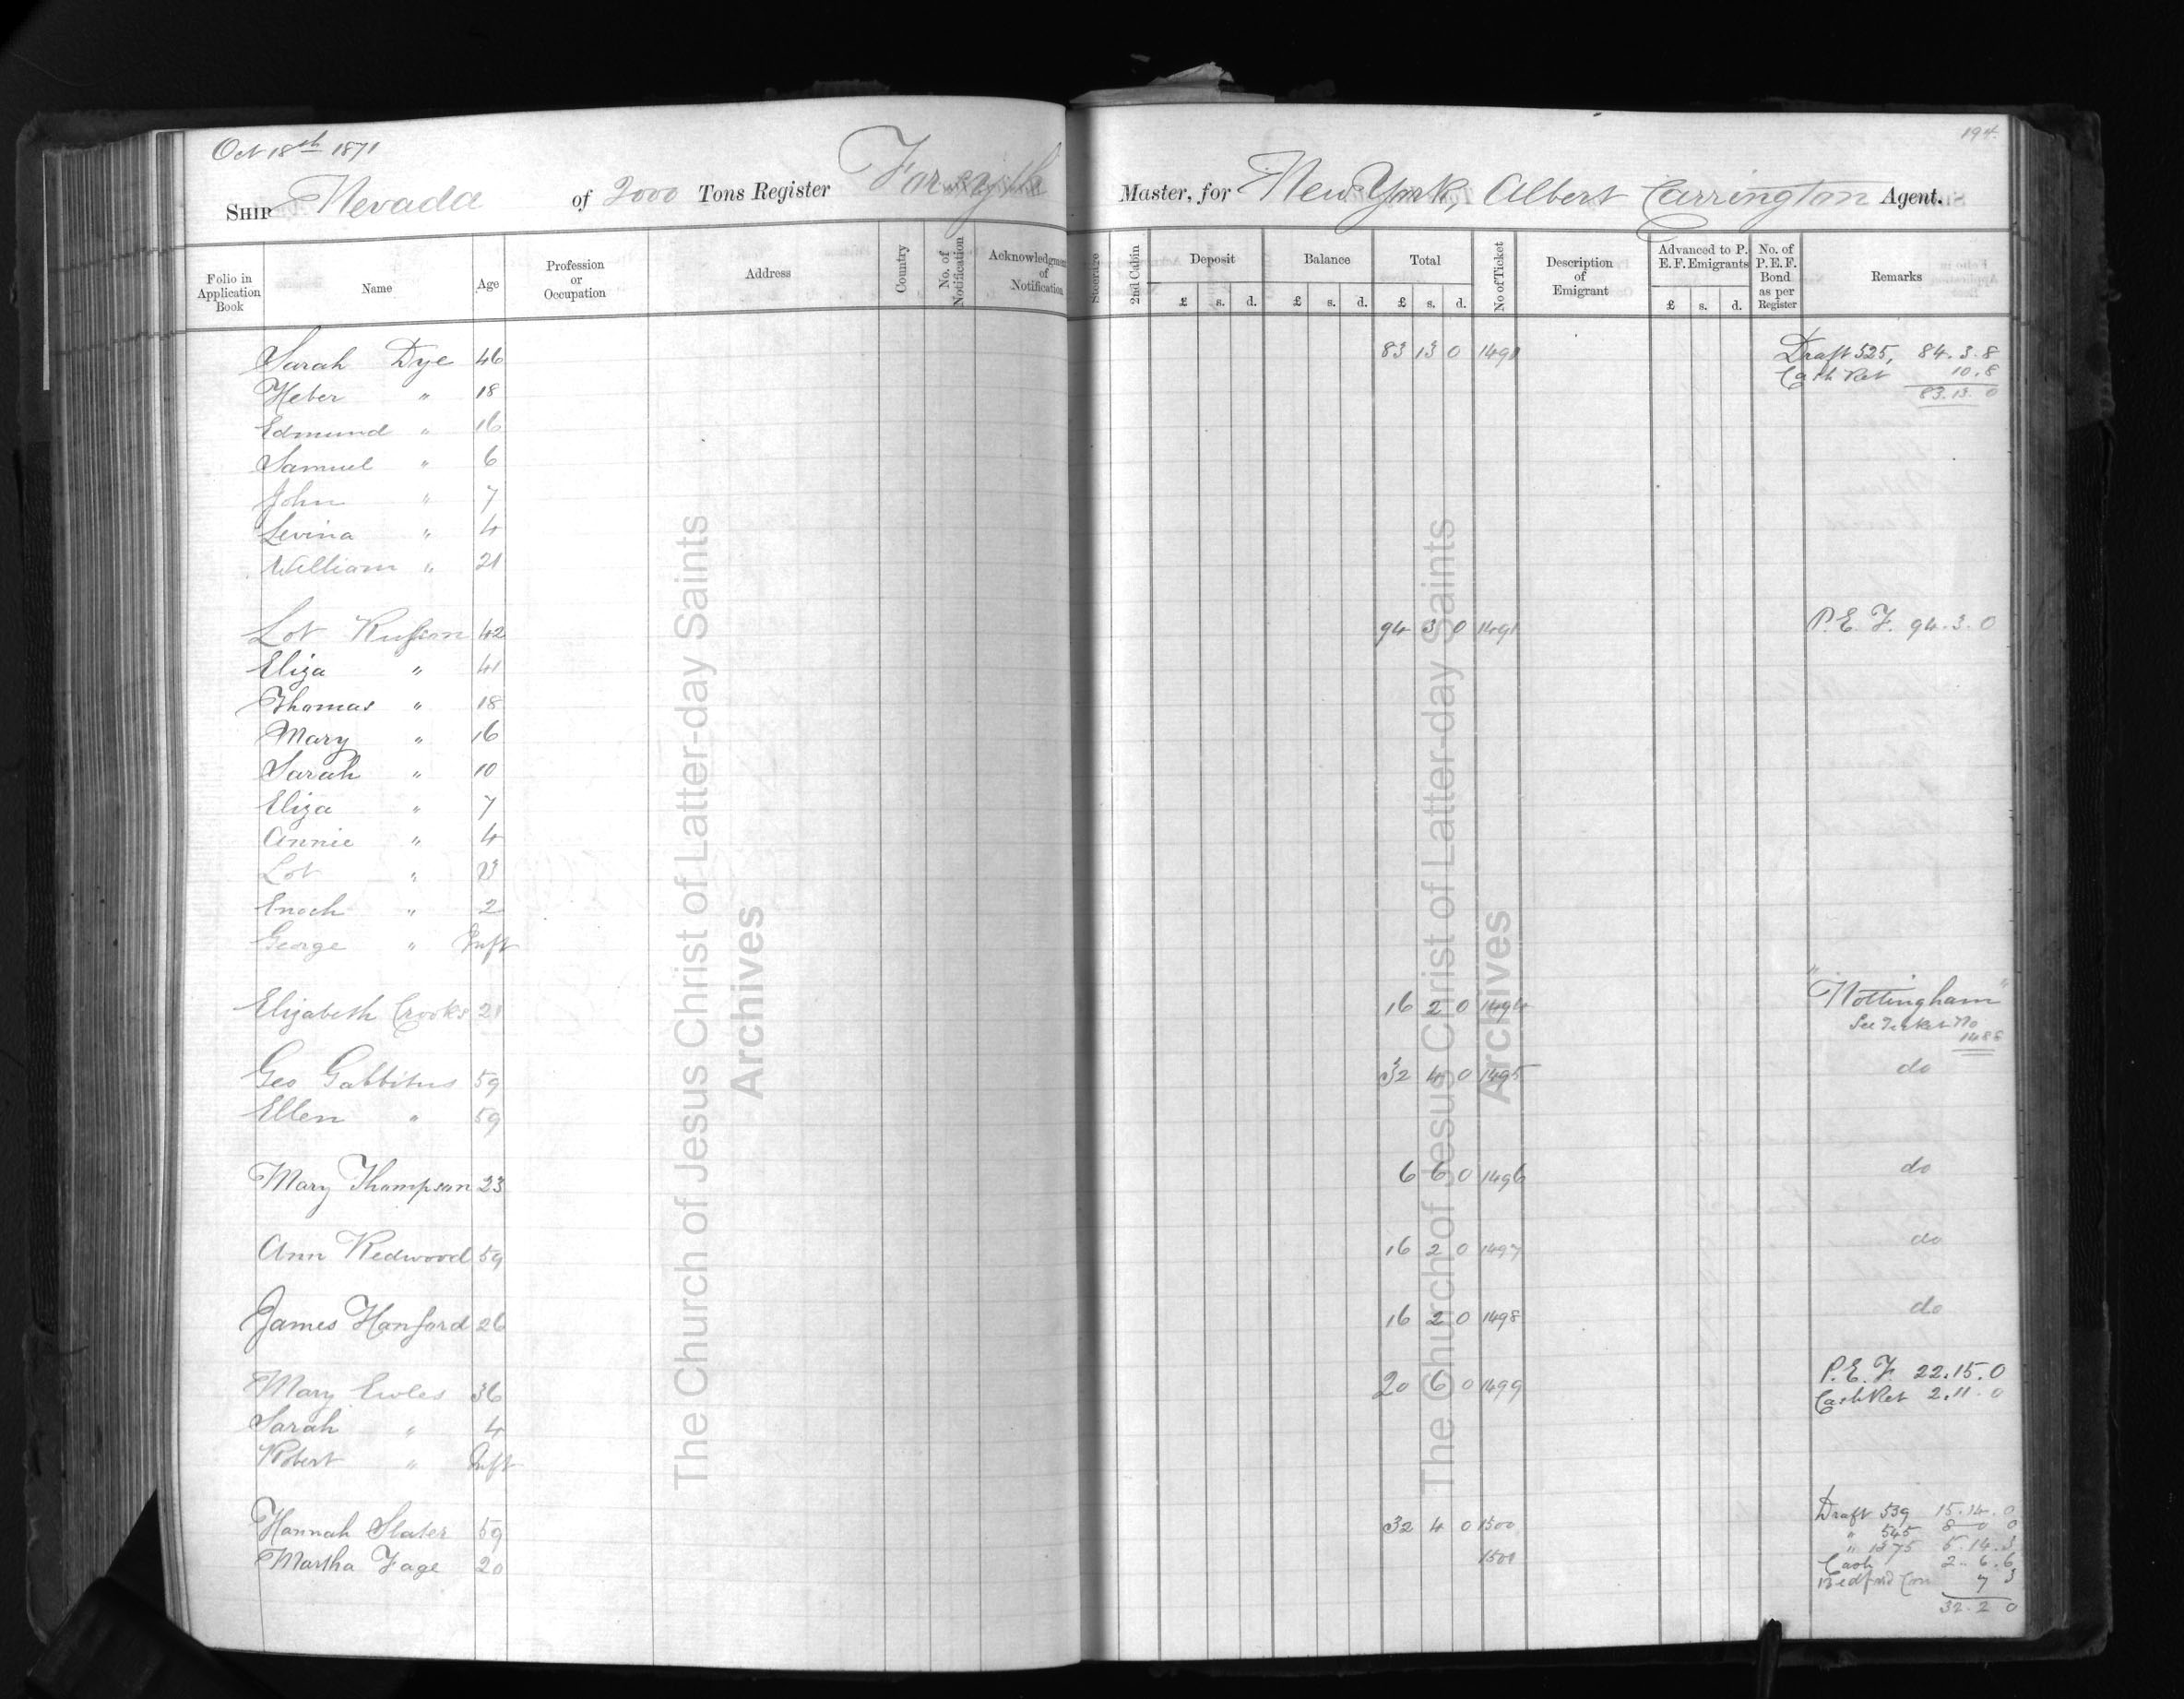 Oct 18th 1871
194
SHIP Nevada of 2000 Tons Register Forsyth Master, for New York, Albert Carrington Agent.
Folio in Application Book Name Age Profession or Occupation Address Country No. of Notification Acknowledgment of Notification Steerage 2nd Cabin Deposit £ s. d. Balance £ s. d. Total £ s. d. No of Ticket Description of Emigrant Advanced to P. E. F. Emigrants £ s. d. No. of P. E. F. Bond as per Register Remarks
Sarah Dye 46 83 13 0 Draft 525, 84.3.8
Cash Ret 10.8
Heber " 18 83.13.0
Edmund " 16
Samuel " 6
John " 7
Levina " 4
William " 21
Lot 42 94 3 0 1491 P.E.F. 94.3.0
Eliza " 41
Thomas " 18
Mary " 16
Sarah " 10
Eliza " 7
Annie " 4
Lot "
Enoch " 2
George " Inft
Elizabeth Crooks 21 16 2 0 1494 "Nottingham"
See Ticket No
1488
Geo Gabbitus 59 32 4 0 1495 do
Ellen " 59
Mary Thompson 23 6 6 0 1496 do
Ann Redwood 59 16 2 0 1497 do
James Hanford 26 16 2 0 1498 do
Mary 36 20 6 0 1499 P.E.F. 22.15.0
Cash Ret 2.11.0
Sarah " 4
Robert " Inft
Hannah Slater 59 32 4 0 1500 Draft 539 15.14.0
" 545 8 0 0
Martha Fage 20 1501 " 1375 5.14.3
Cash 2.6.6
Bedford Con 7 3
32.2.0
The Church of Jesus Christ of Latter-day Saints
Archives
The Church of Jesus Christ of Latter-day Saints
Archives